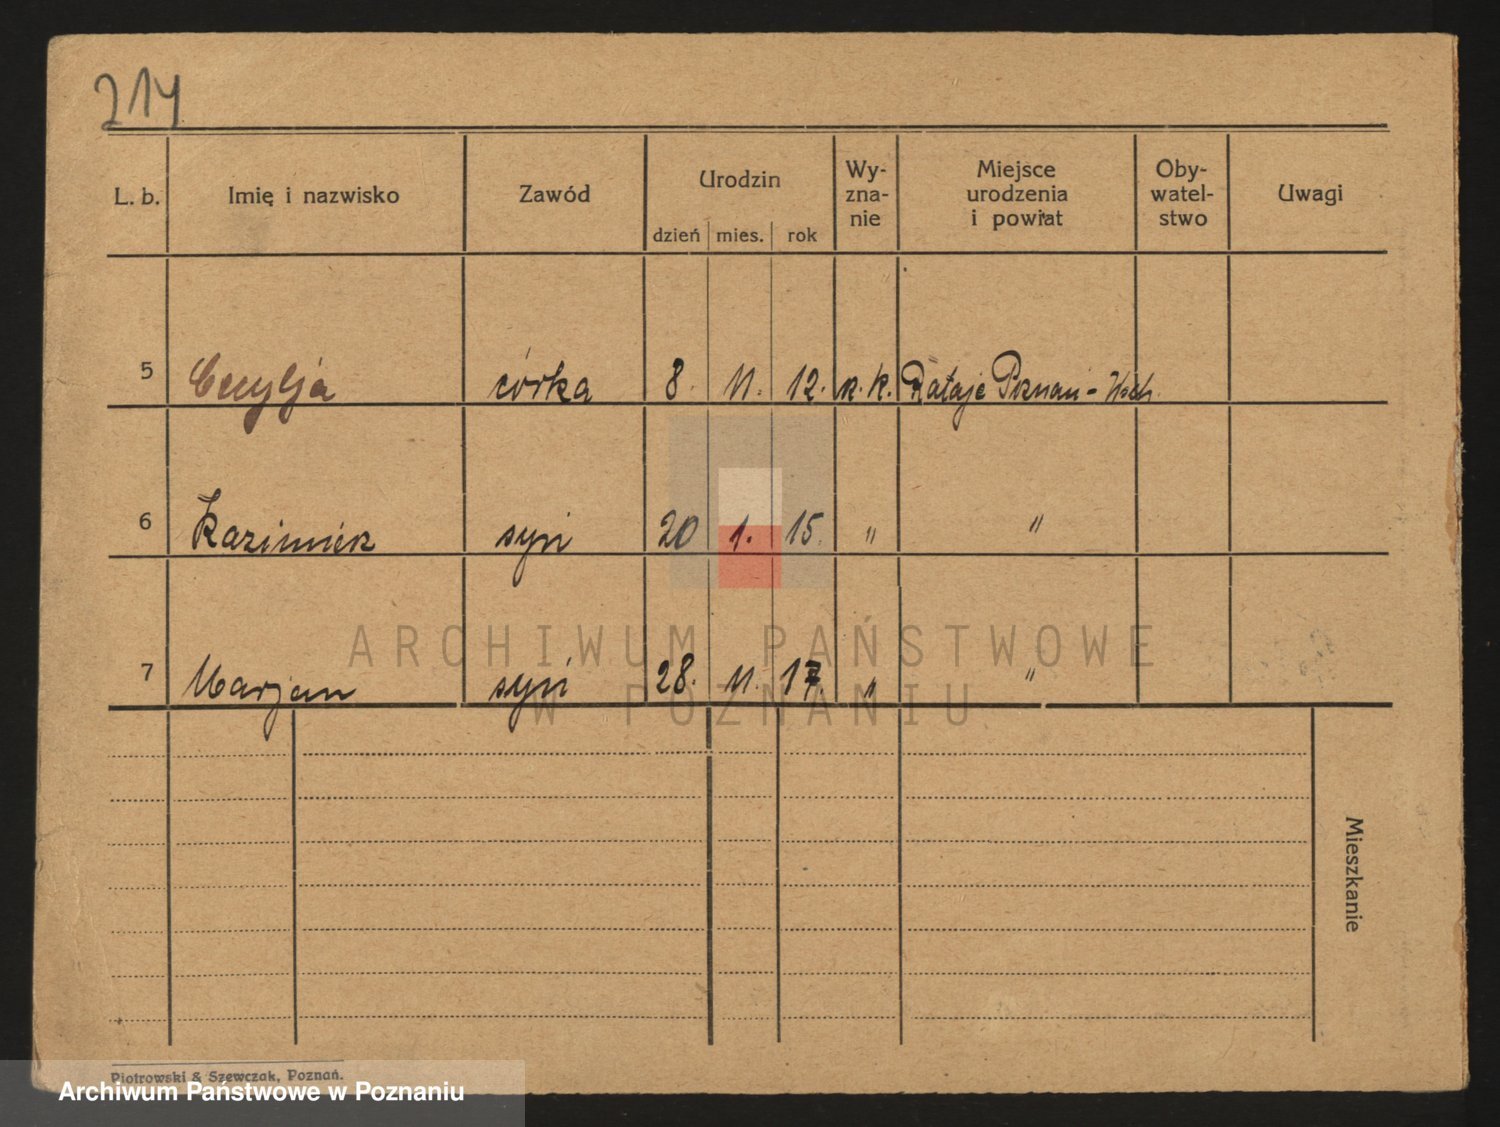 214
L. b. Imię i nazwisko Zawód Urodzin dzień mies. rok Wy-zna-nie Miejsce urodzenia i powiat Oby-watel-stwo Uwagi
5 Cecylja córka 8. 11. 12. r. k. Rataje Poznań - Wsch.
6 Kazimierz syn 20 1. 15. " "
7 Marjan syn 28. 11. 17. " "
ARCHIWUM PAŃSTWOWE
W POZNANIU
Mieszkanie
Piotrowski & Szewczak, Poznań.
Archiwum Państwowe w Poznaniu